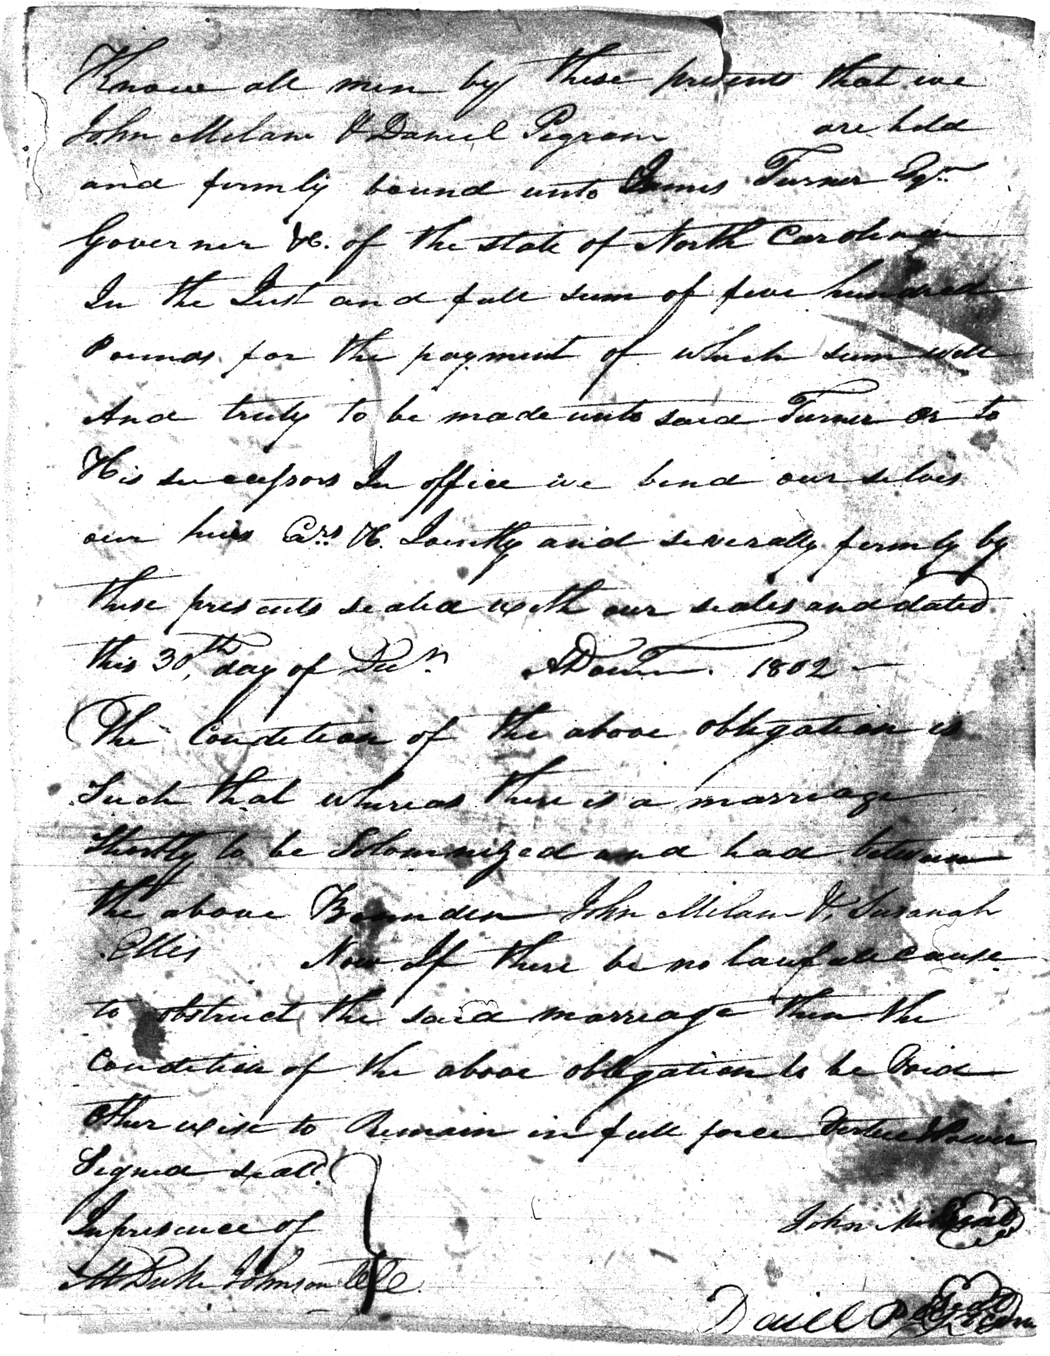 Know all men by these presents that we
John Milam & Daniel Pegram are held
and firmly bound unto James Turner Esqr.
Governer &c. of the state of North Carolina
In the Just and full sum of five hundred
Pounds for the payment of which sum well
And truly to be made unto said Turner Or to
His successors In office we bend our selves
our heirs &c. Jointly and severally firmly by
these presents sealed with our seales and dated
this 30th day of Decr. ADom. 1802
The Condition of the above obligation is
Such that whereas there is a marriage
Shortly to be Solomnized and had between
the above Bounden John Milam & Susanah
Ellis Now If there be no lawfull Cause
to obstruct the said marriage then the
Condition of the above obligation to be Void
other wise to Remain in full force Vertue & Power
Signed seald
In presence of John Milam Seal
M Duke Johnson CCC
Daniel Pegram Seal